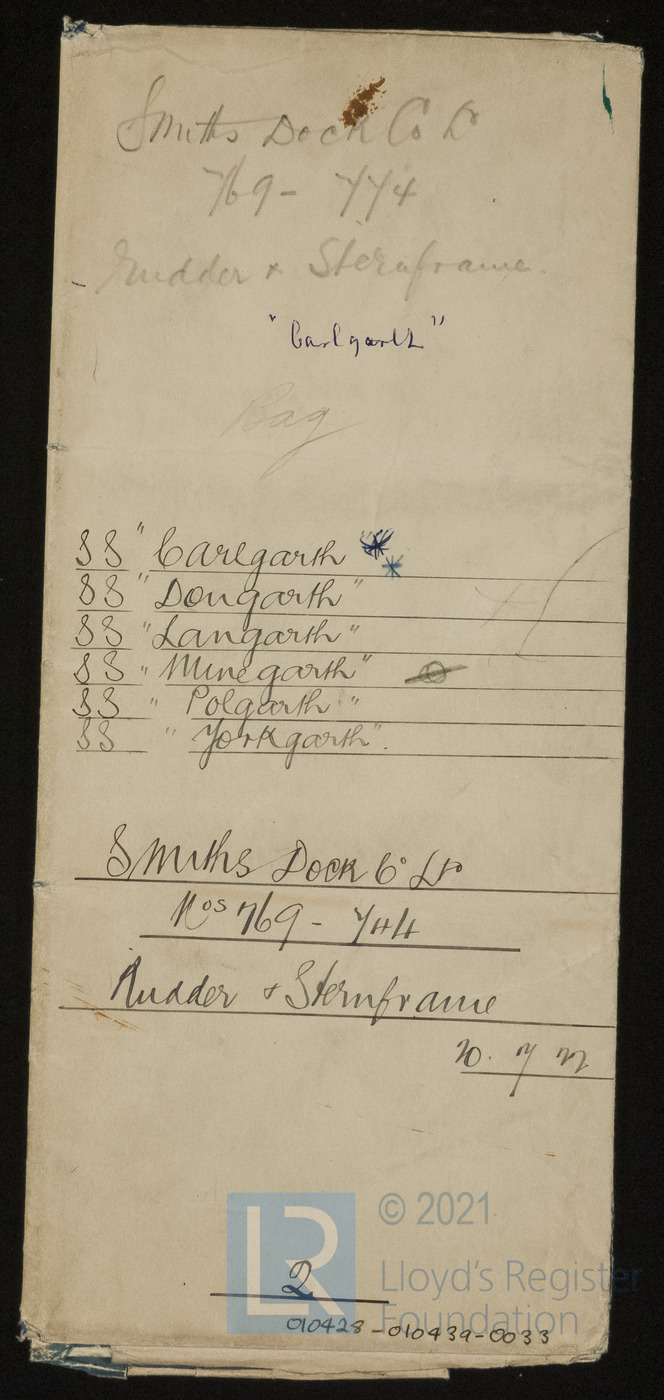 Smiths Dock Co Ld
769 - 774
Rudder & Sternframe.
"Carlgarth"
Bag
SS "Carlgarth
SS "Dongarth"
SS "Langarth"
SS "Minegarth"
SS " Polgarth "
SS " Yorkgarth".
Smiths Dock Co Ld
Nos 769 - 774
Rudder & Sternframe
20. 7 22
© 2021
LR
Lloyd's Register
Foundation
2
010428-010439-0033